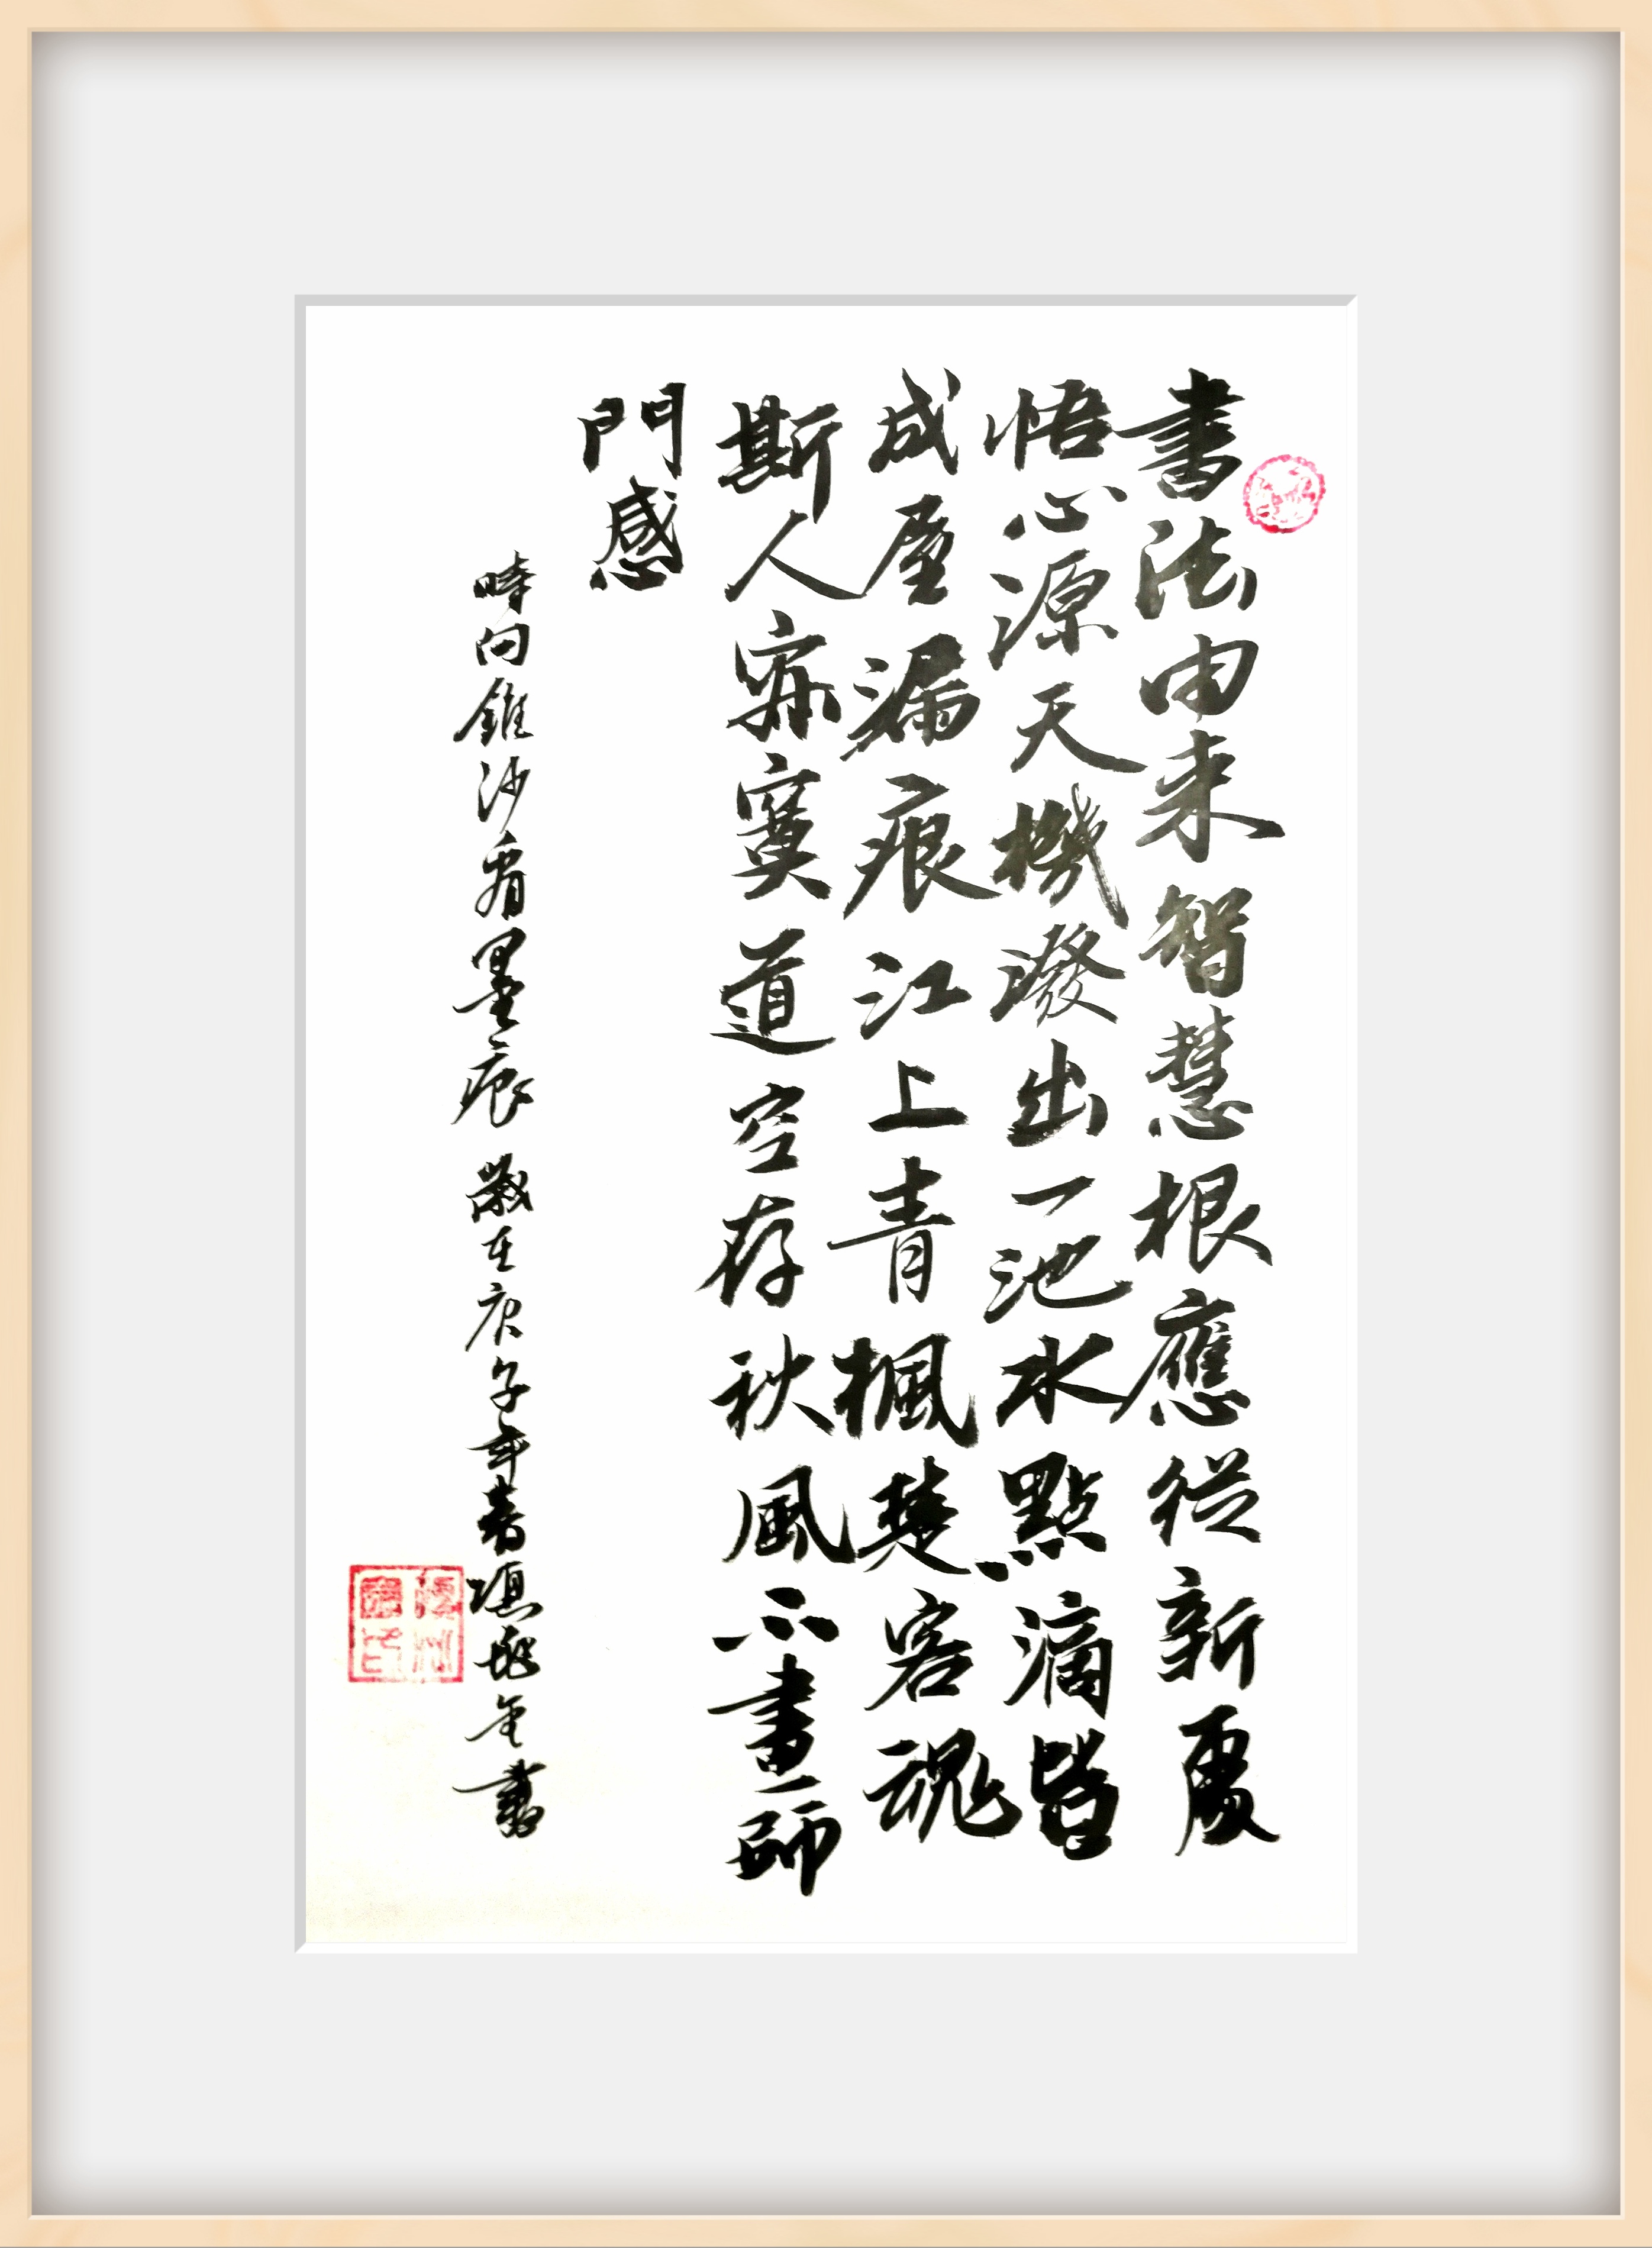 書法由来智慧根應從新處
悟心源天機潑出一池水點滴皆
成屋漏痕江上青楓楚客魂
斯人寂寞道空存秋風不盡師
門感
時向錐沙看墨痕 歲在庚子年春金書